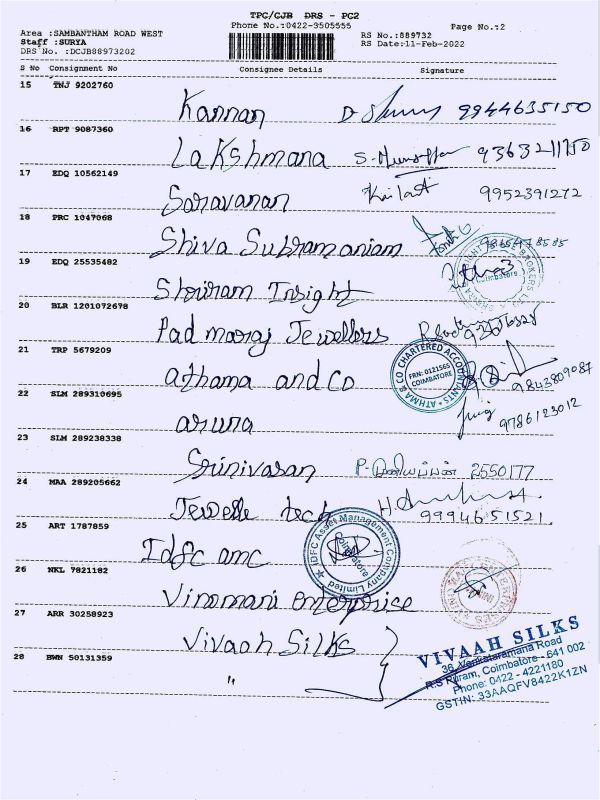 TPC/CJB DRS - PC2
Phone No.:0422-3505555
Page No.:2
Area :SAMBANTHAM ROAD WEST
Staff :SURYA
DRS No. :DCJB88973202
RS No.:889732
RS Date:11-Feb-2022
S No Consignment No Consignee Details Signature
15 TNJ 9202760
Kannan 9944635150
16 RPT 9087360
Lakshmana 9363211750
17 EDQ 10562149
Saravanan Kailash 9952391272
18 PRC 1047068
Shiva Subramaniam
19 EDQ 25535482
Shriram Insight
Coimbatore
20 BLR 1201072678
Padmaraj Jewellers
21 TRP 5679209
athama and Co
& CO CHARTERED ACCOUNTANTS * ATHMA
FRN: 012156S
COIMBATORE
9843809087
22 SLM 289310695
aruna 9786123012
23 SLM 289238338
Srinivasan P. முனியப்பன் 2550177
24 MAA 289205662
Jewelle tech 9994651521
25 ART 1787859
Idfc amc
IDFC Asset Management Company Limited *
Coimbatore
26 NKL 7821182
Vinomani enterprise
27 ARR 30258923
Vivaah Silks
28 BWN 50131359
"
VIVAAH SILKS
36, Venkataramana Road
R.S Puram, Coimbatore - 641 002
Phone: 0422 - 4221180
GSTIN: 33AAQFV8422K1ZN